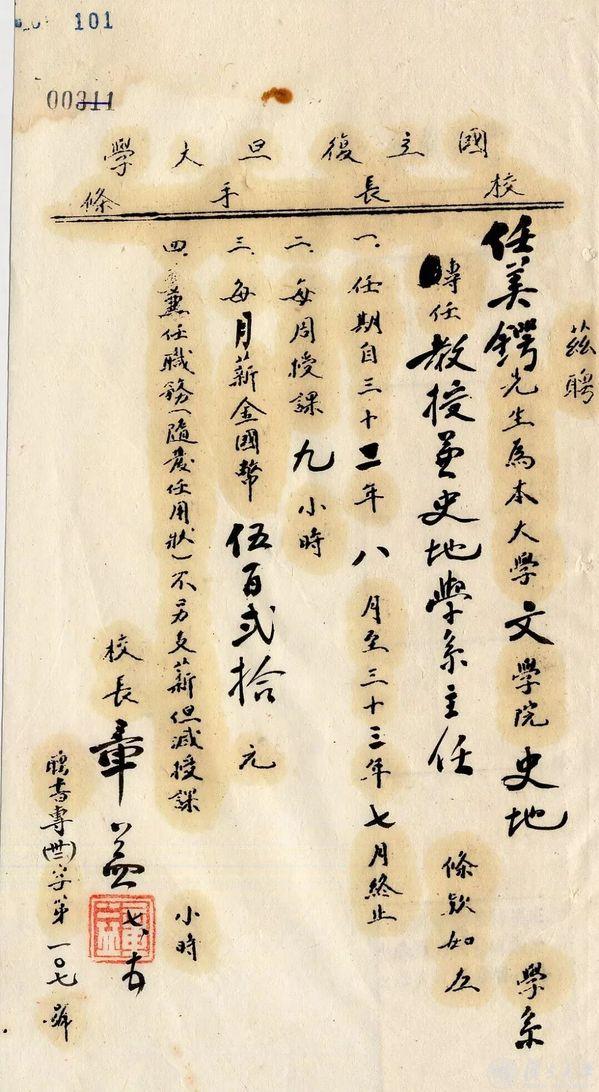 101
00311
國立復旦大學
校長手條
茲聘
任美鍔先生為本大學文學院史地學系
專任教授兼史地學系主任 條欵如左
一、任期自三十二年八月至三十三年七月終止
二、每周授課九小時
三、每月薪金國幣伍百弍拾元
四、兼任職務(隨發任用狀)不另支薪但減授課 小時
校長 章益
聘書專(卅二)字第一〇七號